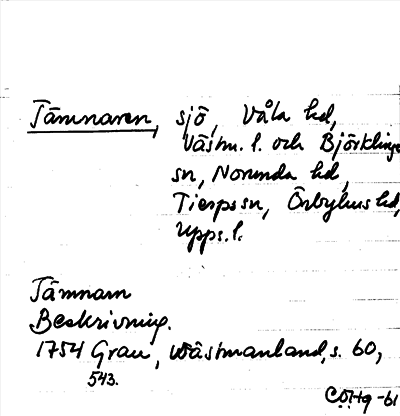 Tämnaren, sjö, Våla hd,
Västm. l. och Björklinge
sn, Norunda hd,
Tierps sn, Örbyhus hd,
Upps. l.
Tämnarn
Beskrivning.
1754 Grau, Wästmanland, s. 60,
543.
-61